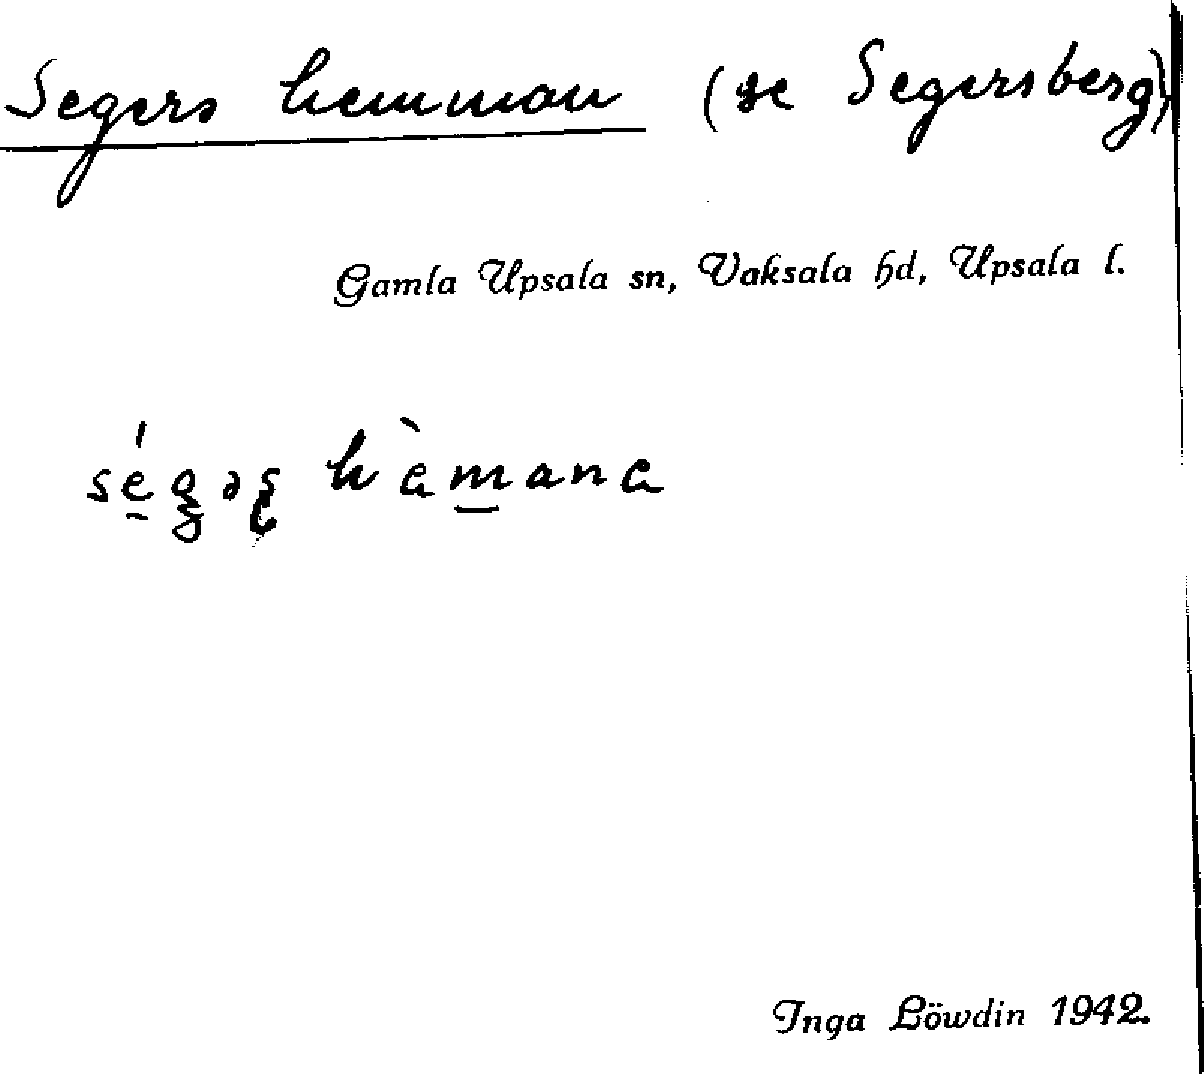 Segers hemman (se Segersberg)
Gamla Upsala sn, Vaksala hd, Upsala l.
Inga Löwdin 1942.